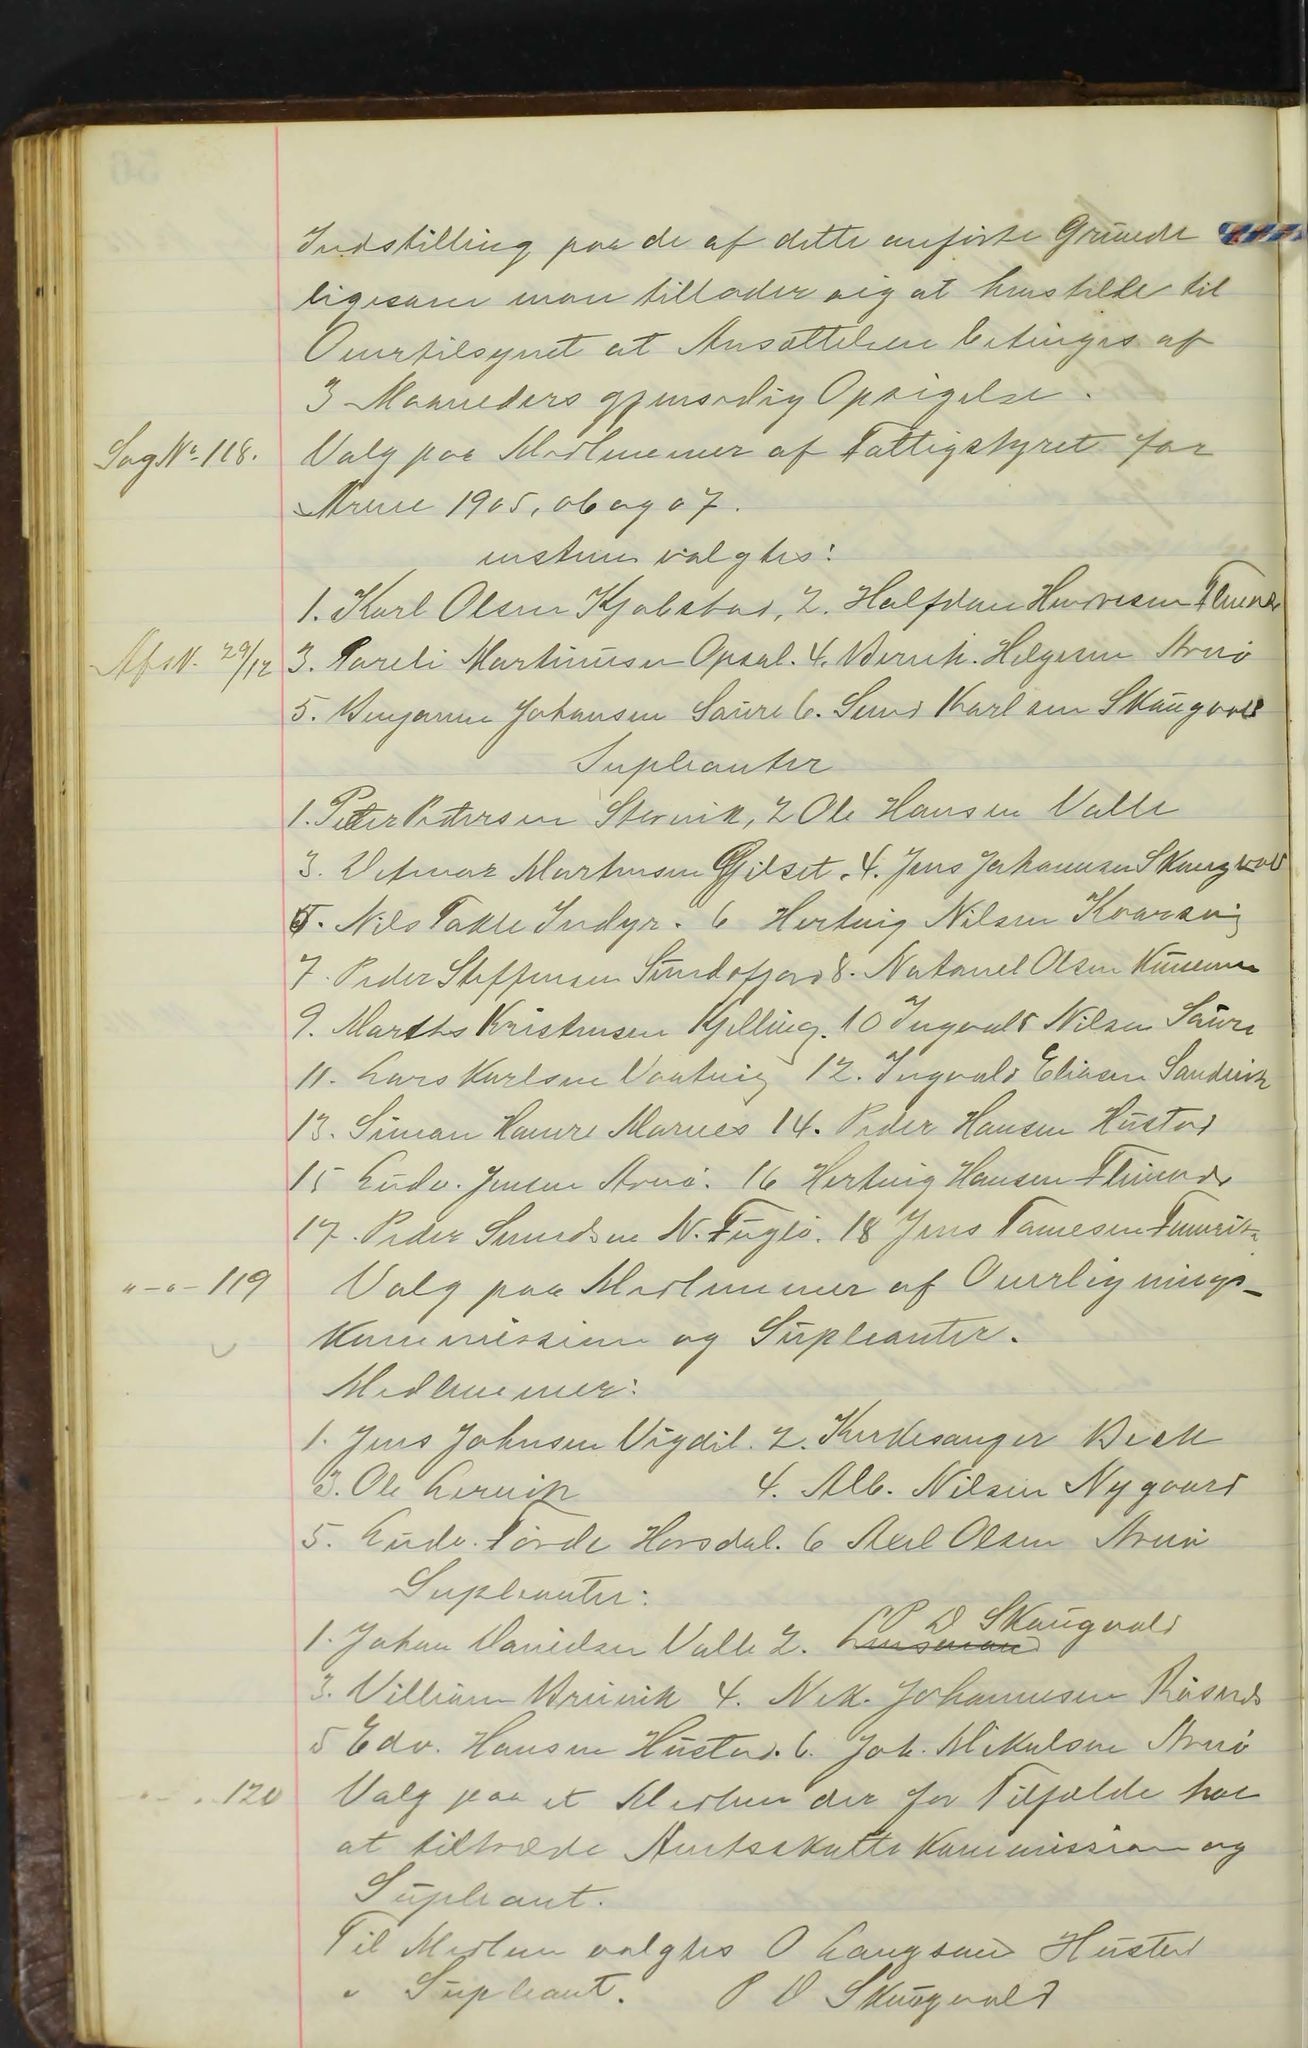 Indstilling paa de af dette anførte Grunde
ligesom man tillader sig at henstille til
Overtilsynet at Ansættelsen betinges af
3 Maaneders gjensidig Opsigelse.
Sag No 118. Valg paa Medlemmer af Fattigstyret for
Aarene 1905, 06 og 07.
valgtes:
1. Karl Olsen Kjølstad, 2. Halfdan
Afsk. 29/12 3. Pareli Martinusen Opsal. 4. Bernh. Helgesen Arnø
5. Benjamin Johansen Saura 6. Karlsen Skaugvold
Supleanter
1. Peter Petersen Storvik, 2 Ole Hansen Valle
3. Martinsen Gjelset. 4. Jens Johannesen Skaugvold
5. Nils Takle Indyr. 6 Hertvig Nilsen Kvarsvig
7. Peder Steffensen Sundsfjord 8. Natanel Olsen
9. Kristensen Kjelling. 10 Ingvald Nilsen Saura
11. Lars Karlsen Vaatvig 12. Ingvald Eliasen Sandvik
13. Simon Hamre Marnes 14. Peder Hansen Hustad
15 Ludv. Jensen Arnø. 16 Hertvig Hansen
17. Peder N. Fuglø. 18 Jens
"-"- 119 Valg paa Medlemmer af Overlignings-
kommission og Supleanter.
Medlemmer:
1. Jens Johnsen Vigdel. 2. Kirkesanger Beck
3. Ole Lervik 4. Alb. Nilsen Nygaard
5. Ludv. Førde Horsdal. 6 Axel Olsen Arnø
Supleanter:
1. Johan Danielsen Valle 2. P D Skaugvold
3. Villiam 4. Nik. Johannesen Røsnes
5 Edv. Hansen Hustad. 6. Joh. Mikalsen Arnø
"-" 120 Valg paa et Medlem der for Tilfælde har
at tiltræde Amtsskattekommission og
Supleant.
Til Medlem valgtes O Langsand Hustad
" Supleant. P D Skaugvold